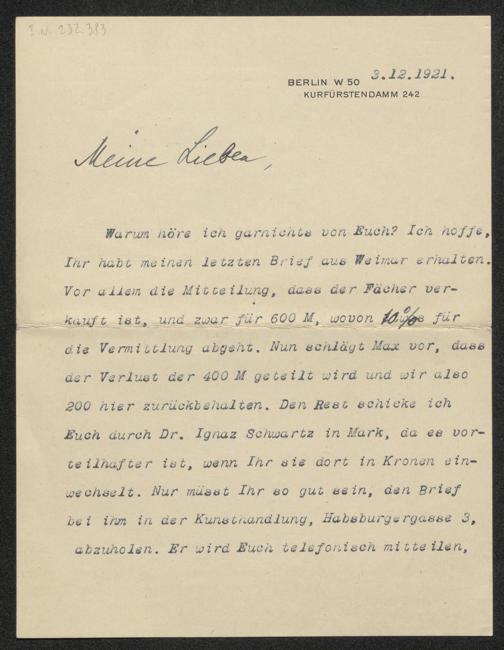 I.N. 232.383
3.12.1921.
BERLIN W 50
KURFÜRSTENDAMM 242
Meine Lieben,
Warum höre ich garnichts von Euch? Ich hoffe,
Ihr habt meinen letzten Brief aus Weimar erhalten.
Vor allem die Mitteilung, dass der Fächer ver-
kauft ist, und zwar für 600 M, wovon 10% für
die Vermittlung abgeht. Nun schlägt Max vor, dass
der Verlust der 400 M geteilt wird und wir also
200 hier zurückbehalten. Den Rest schicke ich
Euch durch Dr. Ignaz Schwartz in Mark, da es vor-
teilhafter ist, wenn Ihr sie dort in Kronen ein-
wechselt. Nur müsst Ihr so gut sein, den Brief
bei ihm in der Kunsthandlung, Habsburgergasse 3,
abzuholen. Er wird Euch telefonisch mitteilen,